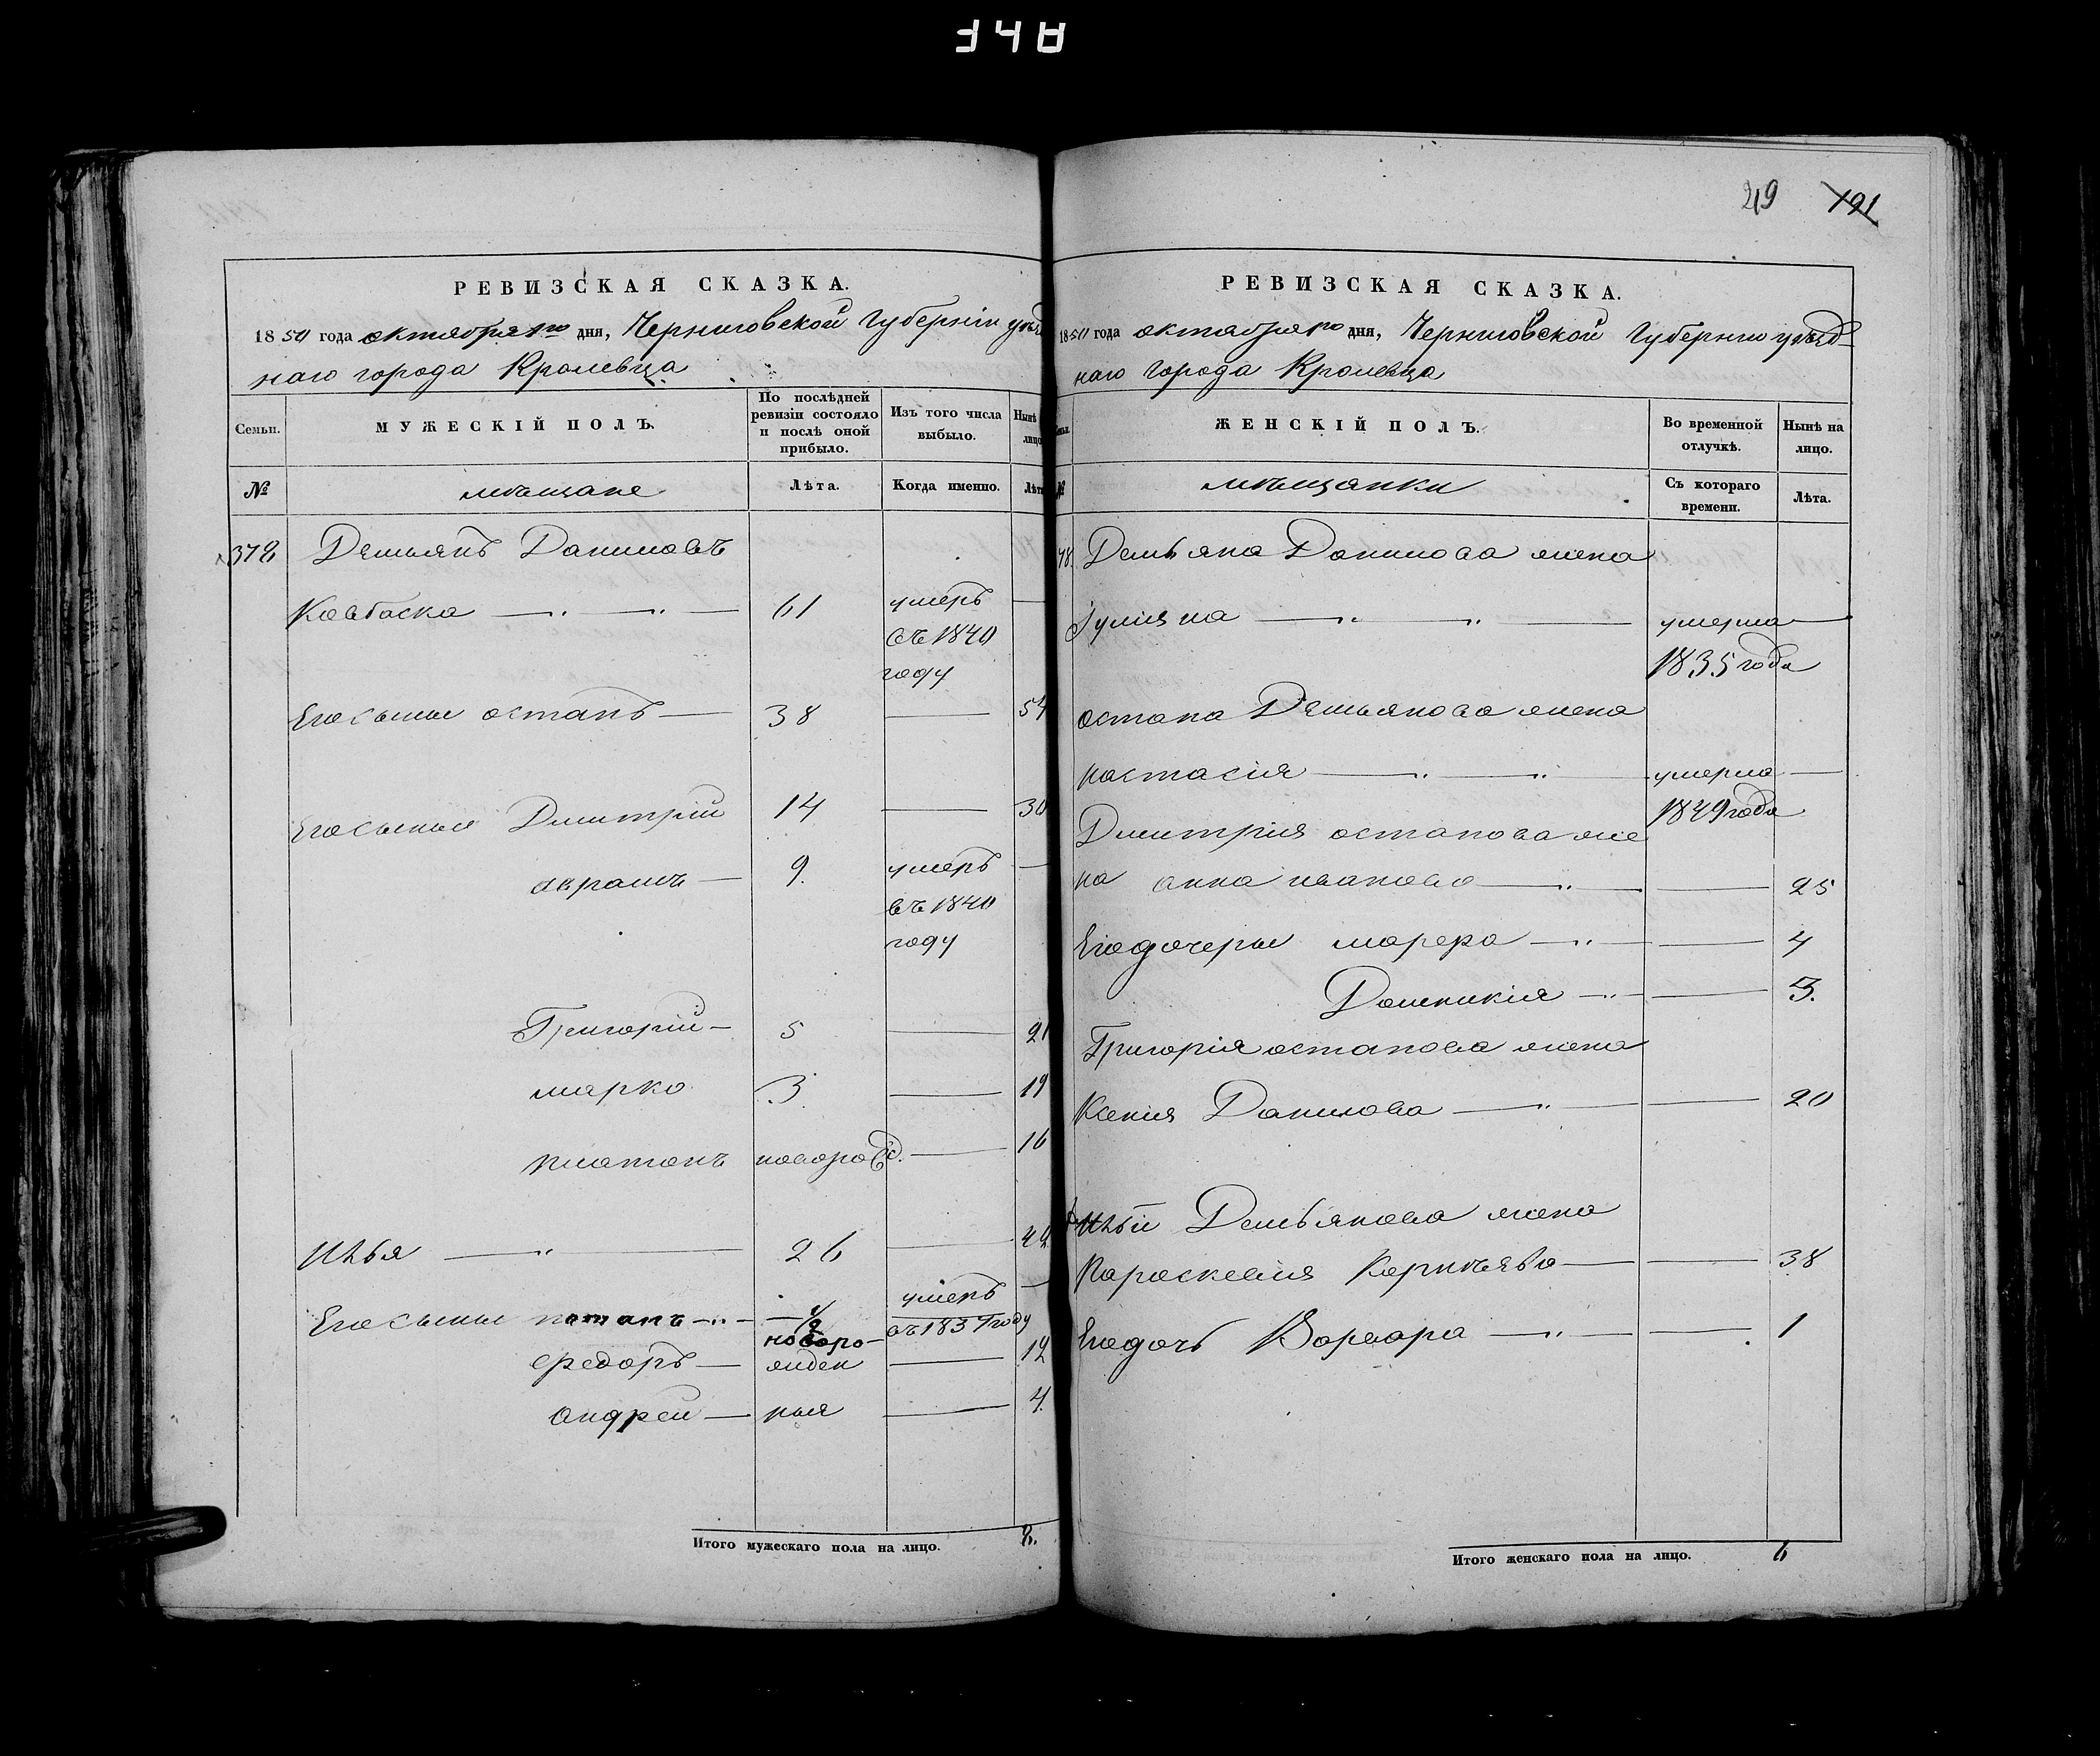 219 191
РЕВИЗСКАЯ СКАЗКА.
1850 года октября 1го дня, Черниговской Губерніи уѣзд
наго города Кролевца
Семьи.
МУЖЕСКІЙ ПОЛЪ.
По послѣдней ревизіи состояло и послѣ оной прибыло.
Изъ того числа выбыло.
Нынѣ лицо
№
мѣщане
Лѣта.
Когда именно.
Лѣта
378 Демьянъ Даниловъ
Ковбаска 61 умеръ —
въ 1840
году
Его сыны остапъ — 38 — 54
Его сыны Дмитрій 14 — 30
аврамъ — 9. умеръ —
въ 1840
году
Григорій — 5 — 21
марко 3. — 19
платонъ новорожд. — 16
Илья — 26 — 42
Его сыны потапъ — 1/2 умеръ —
въ 183 году
ѳедоръ — новоро- — 12
андрей — жден ныя — 4.
Итого мужескаго пола на лицо. 8.
РЕВИЗСКАЯ СКАЗКА.
1850 года октября 1го дня, Черниговской Губерніи уѣзд-
наго города Кролевца
ЖЕНСКІЙ ПОЛЪ.
Во временной отлучкѣ.
Нынѣ на лицо.
№
мѣщанки
Съ котораго времени.
Лѣта.
78. Демьяна Данилова жена
Іулияна — умерла —
1835 года
остапа Демьянова жена
настасія — умерла —
1849 года
Дмитрія остапова же
на анна иванова — — 25
Его дочеры марфа — — 4
Домникія — — 3.
Григорія остапова жена
Ксенія Данилова — — 20
Ильи Демьянова жена
Параскевия Корнѣева — — 38
Его дочь Варвара — — 1
Итого женскаго пола на лицо. 6